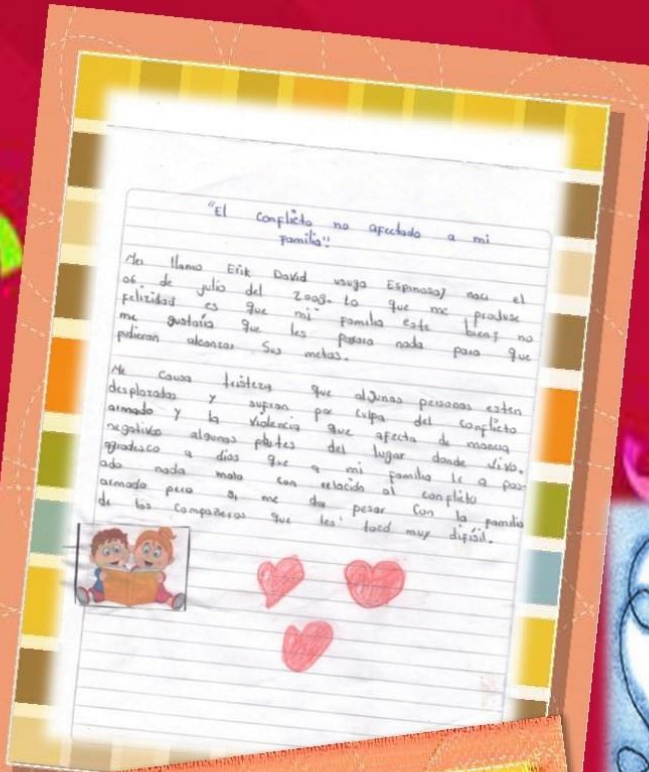 "El conflicto no afectado a mi
familia"
Me llamo Erik David usuga Espinosa, naci el
06 de julio del 2009. Lo que me produse
felizidad es que mi familia este bien, no
me gustaria que les pasara nada para que
pudieran alcanzar sus metas.
Me causa tristeza que algunas personas esten
desplazados y sufran por culpa del conflicto
armado y la violencia que afecta de manera
negativa algunas partes del lugar donde vivo.
agradesco a dios que a mi familia le a pas-
ado nada malo con relacion al conflicto
armado pero si me da pesar con la familia
de los compañeros que les tocó muy dificil.